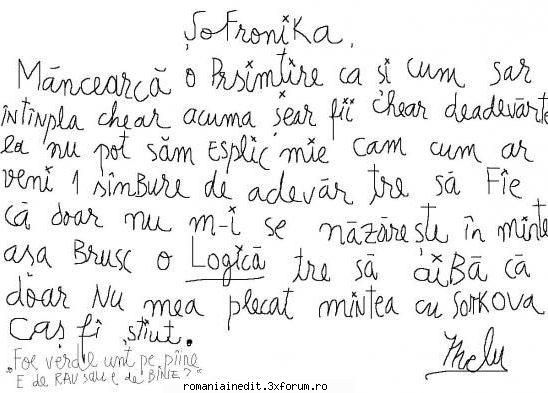 ȘoFroniKa,
Măncearcă o Prsimtire ca și cum șar
întînpla chear acuma șear fii chear deadevărte
ea nu pot săm Esplic mie cam cum ar
veni 1 sînBure de adevăr tre să Fie
că doar nu m-i se năzărește în minte
așa Brusc o Logică tre să aiBă că
doar Nu mea plecat mintea cu Sorkova
Caș fi știut.
Thelu
„Foe verde unt pe pîine
E de RAU sau e de BINE?"
romaniainedit.3xforum.ro